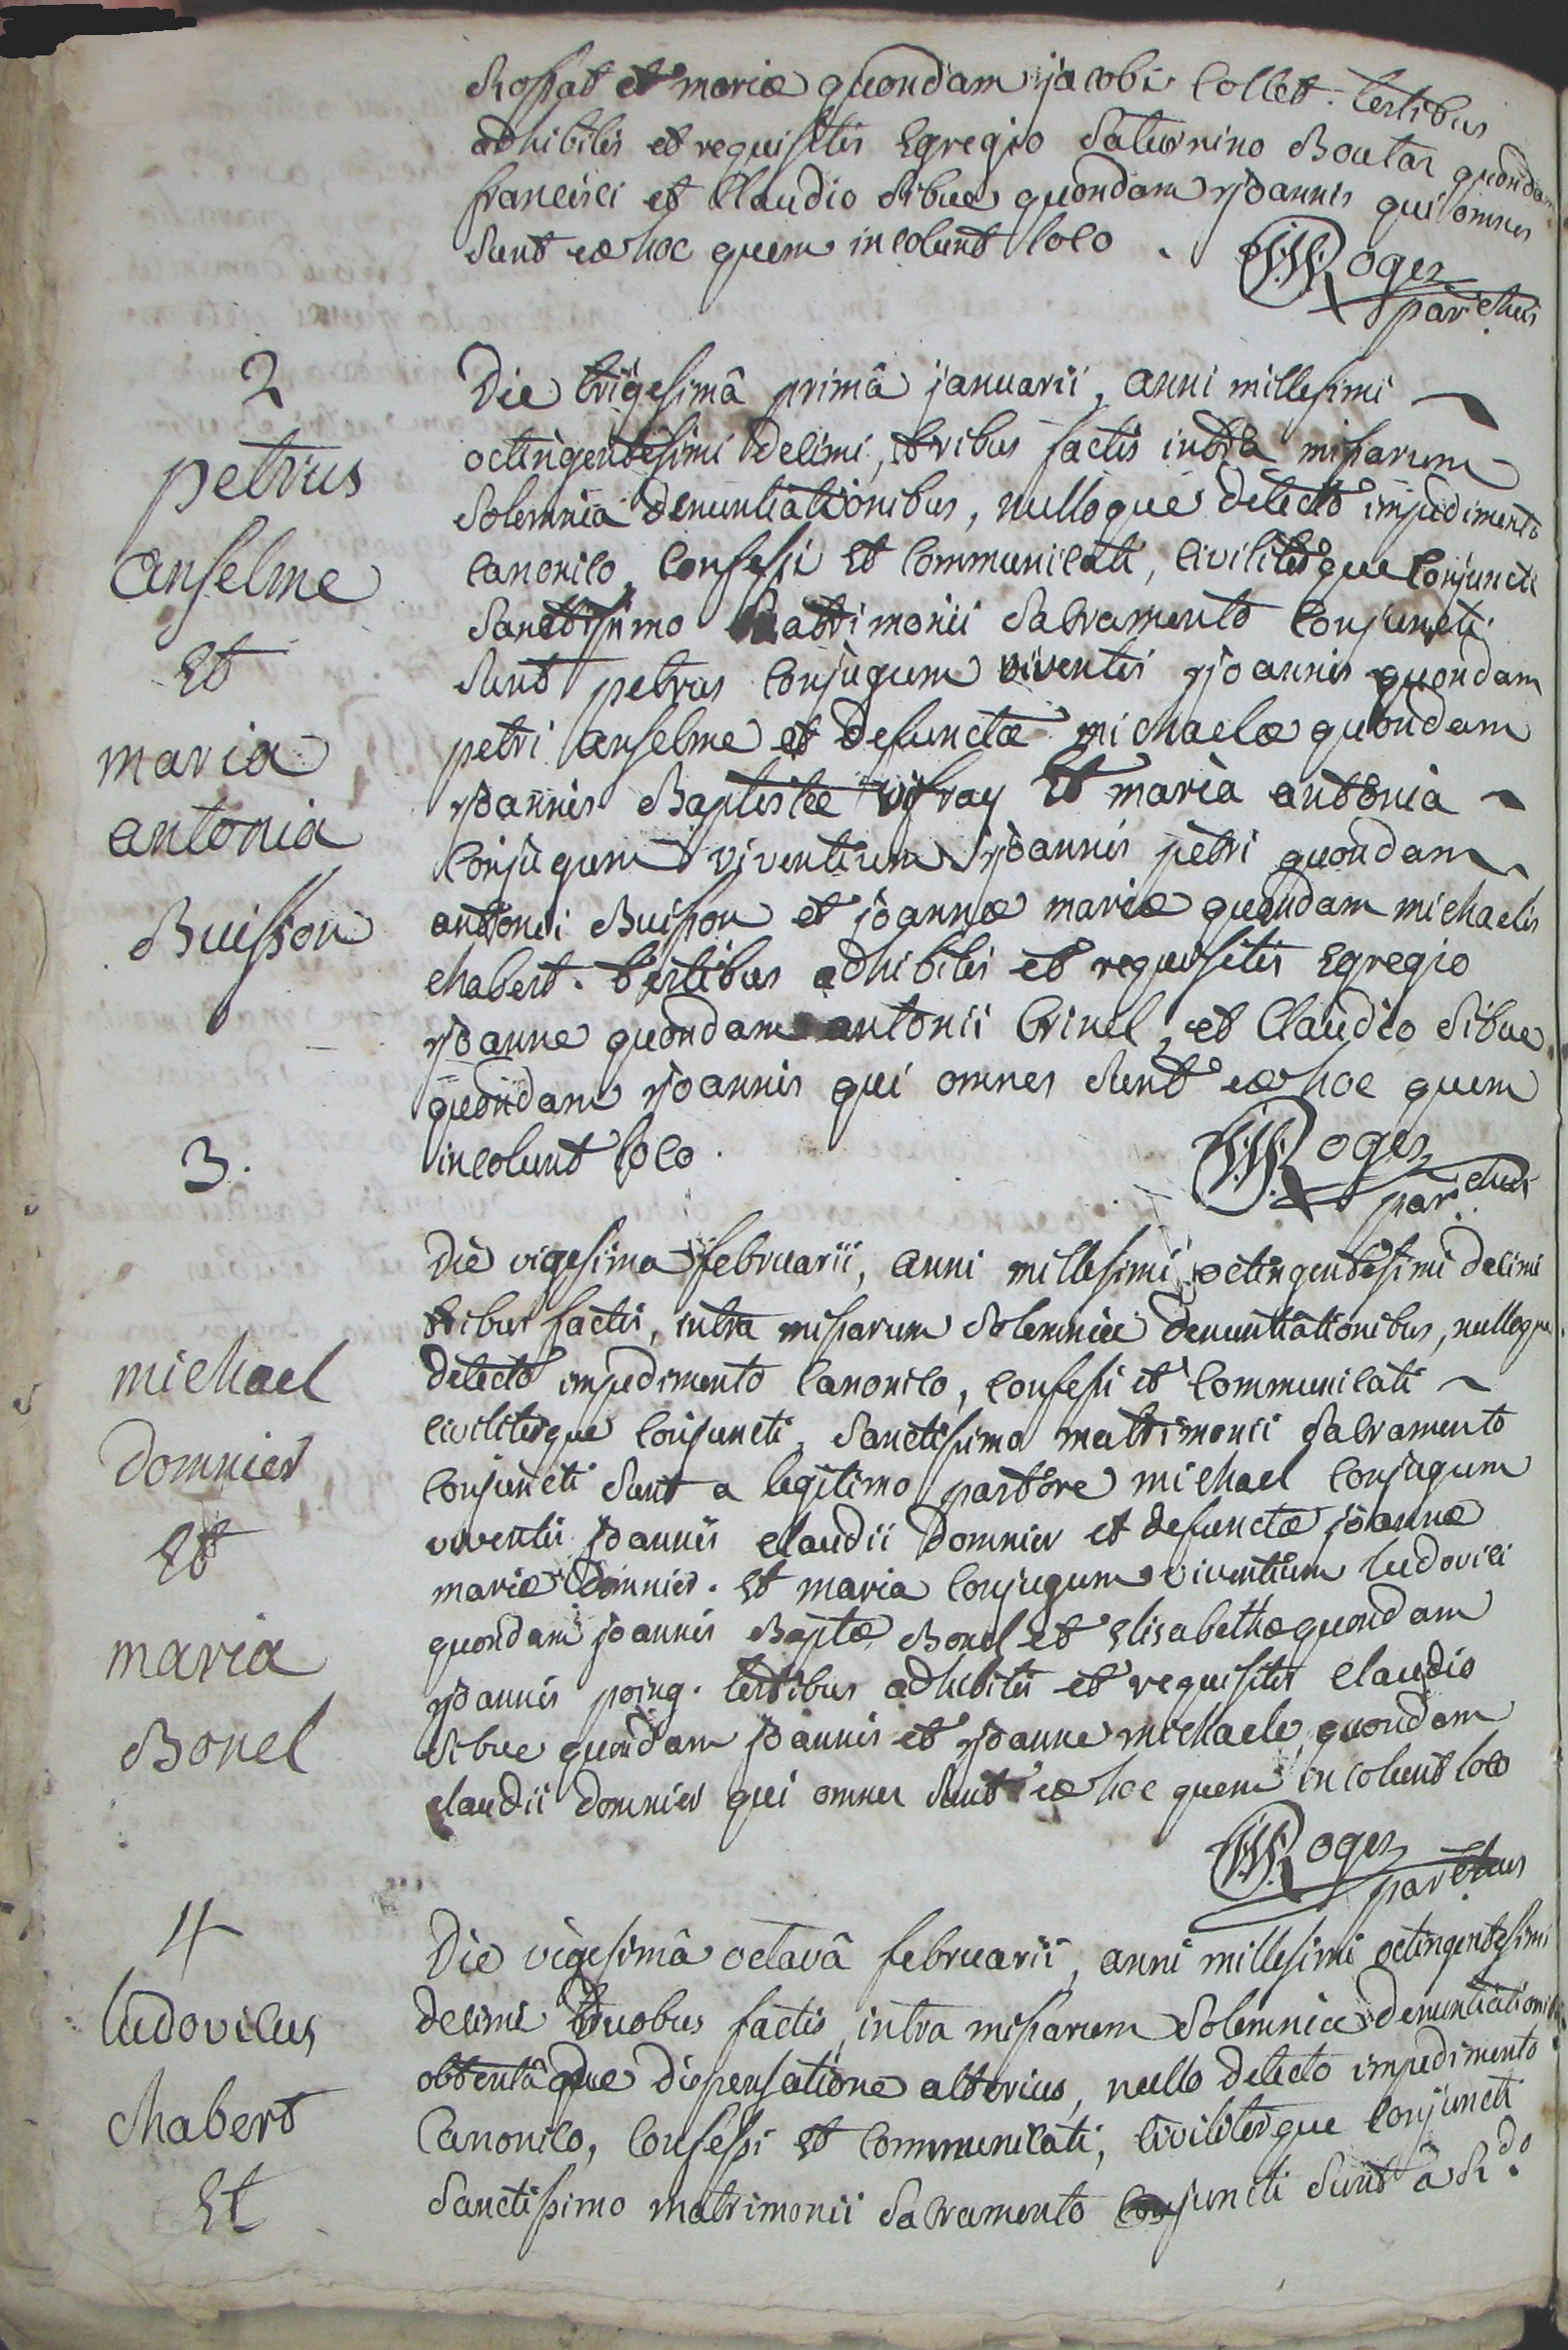 Rossat et mariæ quondam jacobi Collet. testibus
adhibitis et requisitis Egregio Saturnino Boutaz quondam
francisci et Claudio Sibue quondam joannis qui omnes
sunt ex hoc quem incolunt loco. Roger
parochus
2
petrus
anselme
Et
maria
antonia
Buisson
Die trigesimâ primâ januarii, anni millesimi
octingentesimi decimi, tribus factis intra missarum
solemnia denuntiationibus, nulloque detecto impedimento
canonico, confessi et communicati, civiliterque conjuncti
sanctissimo matrimonii sacramento conjuncti
sunt petrus conjugum viventis joannis quondam
petri anselme et defunctæ michaelæ quondam
joannis Baptistæ vifray Et maria antonia
conjugum viventium joannis petri quondam
antonii Buisson et joannæ mariæ quondam michaelis
chabert. testibus adhibitis et requisitis Egregio
joanne quondam antonii Crinel, et Claudio Sibue
quondam joannis qui omnes sunt ex hoc quem
incolunt loco. Roger
parchus
3.
michael
domnier
Et
maria
Bonel
Die vigesima februarii, anni millesimi octingentesimi decimi
tribus factis, intra missarum solemnia denuntiationibus, nulloque
detecto impedimento canonico, confessi et communicati
civiliterque conjuncti, sanctissimo matrimonii sacramento
conjuncti sunt a legitimo pastore michael conjugum
viventis joannis claudii domnier et defunctæ joannæ
mariæ domnier. Et maria conjugum viventium ludovici
quondam joannis Baptæ Bonel et Elisabethæ quondam
joannis poing. testibus adhibitis et requisitis claudio
Sibue quondam joannis et joanne michaele quondam
claudii domnier qui omnes sunt ex hoc quem incolunt loco
Roger
parchus
4
ludovicus
chabert
Et
Die vigesimâ octavâ februarii, anni millesimi octingentesimi
decimi duobus factis, intra missarum solemnia denuntiationibus
obtentâque dispensatione alterius, nullo detecto impedimento
Canonico, confessi et communicati, civiliterque conjuncti
sanctissimo matrimonii sacramento conjuncti sunt â Rdo.